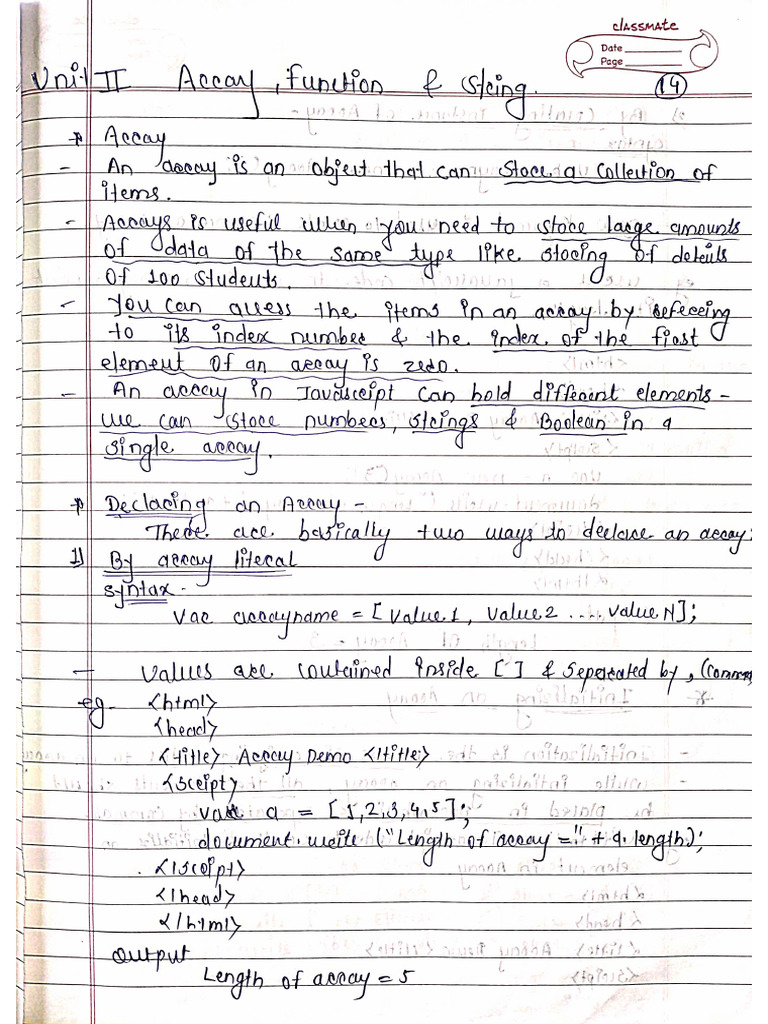 classmate
Date
Page
14
Unit II Array, function & String.
* Array
- An array is an object that can store a collection of
items.
- Arrays is useful when you need to store large amounts
of data of the same type like storing of details
of 100 students.
- You can guess the items in an array by refereing
to its index number & the index of the first
element of an array is zero.
- An array in Javascript can hold different elements -
we can store numbers, strings & Boolean in a
single array.
* Declaring an Array -
There are basically two ways to declare an array:
1) By array literal
syntax -
Var arrayname = [value1, value2 .... value N];
- values are contained inside [ ] & seperated by , (comma
eg- <html>
<head>
<title> Array Demo </title>
<script>
var a = [5,2,3,4,5];
document.write ("Length of array =" + a.length);
</script>
</head>
</html>
output
Length of array = 5